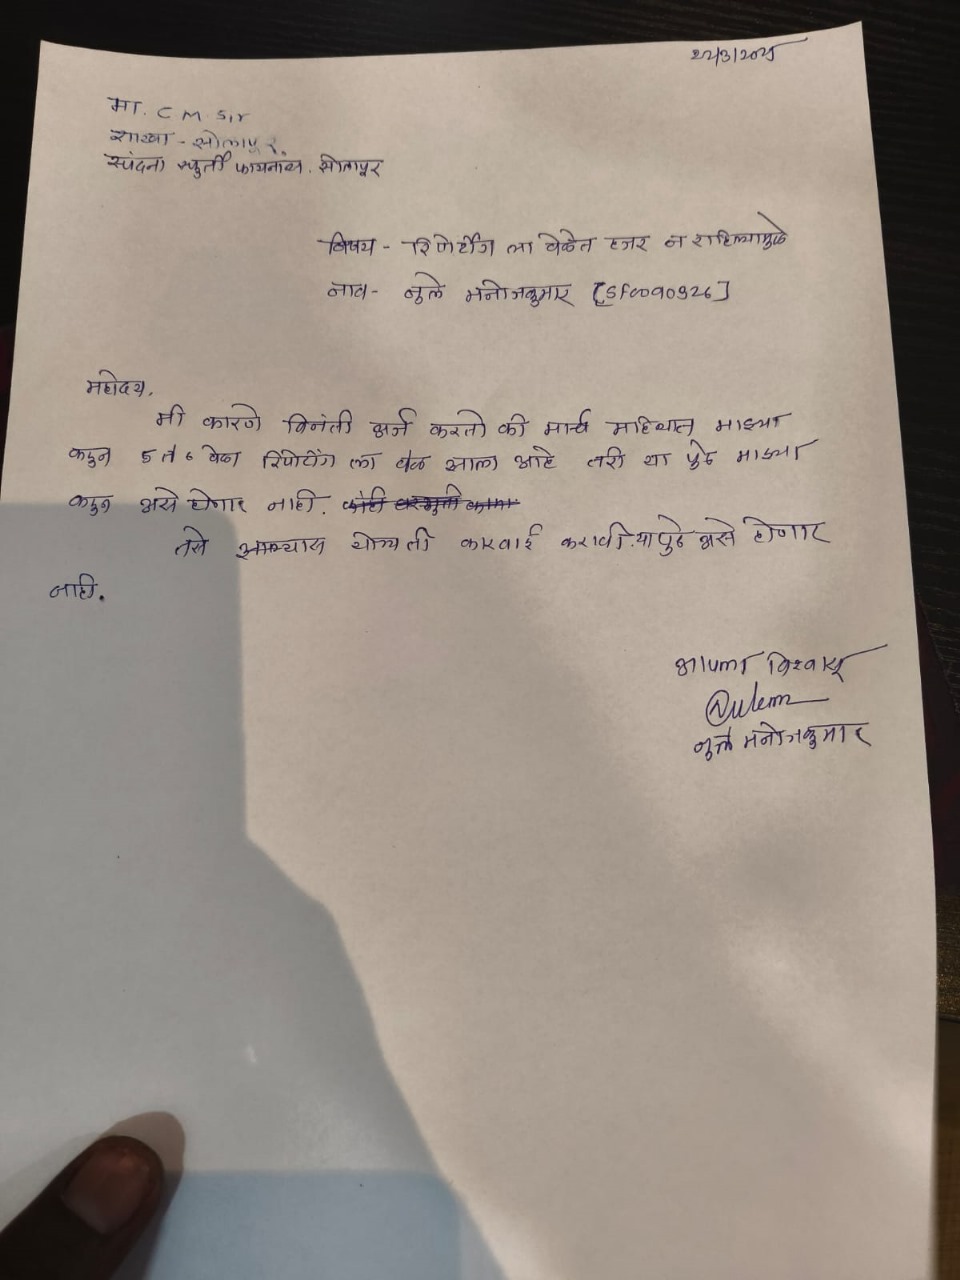 22/3/2025
मा. C M Sir
शाखा - सोलापूर.
स्पंदना स्फुर्ती फायनान्स. सोलापूर
विषय - रिपोर्टींग ला वेळेत हजर न राहिल्यामुळे
नाव - नुले मनोजकुमार [SF0090326]
महोदय.
मी कारणे विनंती अर्ज करतो की मार्च महिन्यात माझ्या
कडुन 5 ते 6 वेळा रिपोर्टींग ला वेळ झाला आहे तरी या पुढे माझ्या
कडुन असे होणार नाही.
तसे आढळ्यास योग्य ती कारवाई करावी. या पुढे असे होणार
नाही.
आपला विश्वासू
नुले मनोजकुमार